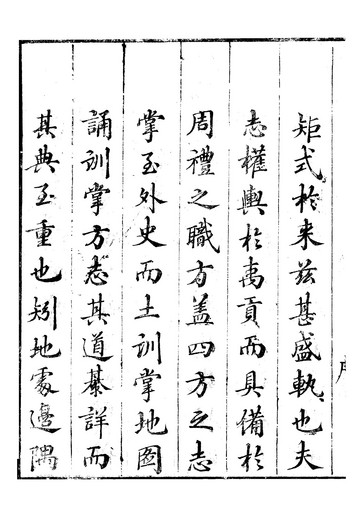 矩式於来兹甚盛軌也夫
志權輿於禹貢而具備於
周禮之職方盖四方之志
掌至外史而土訓掌地圖
誦訓掌方志其道綦詳而
其典至重也矧地處邊隅